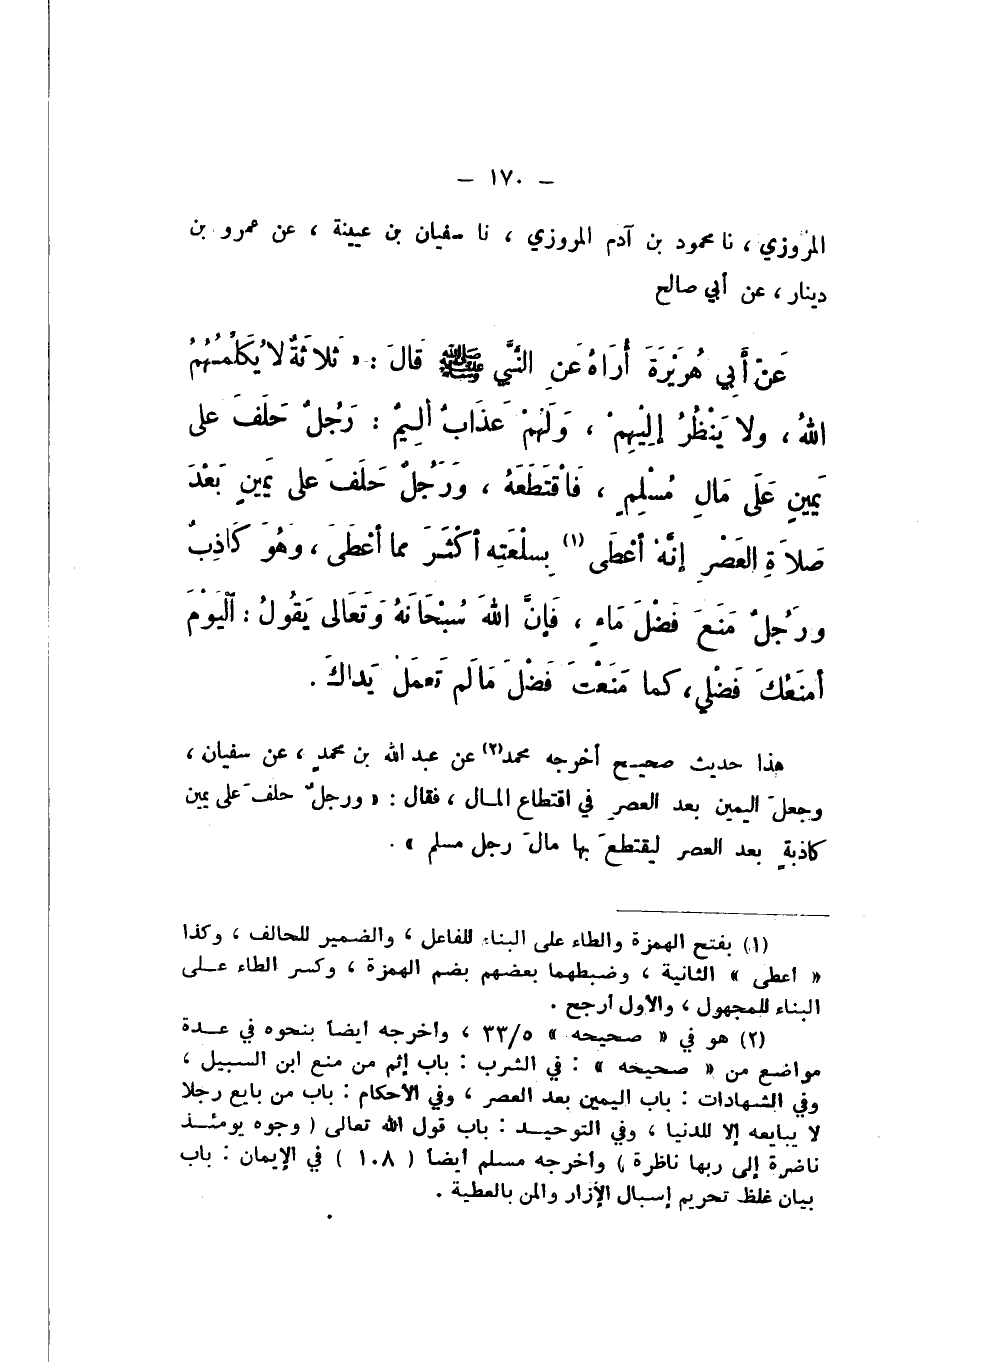 – ١٧٠ –
المرْوزي ، نا محمود بن آدم المروزي ، نا سفيان بن عيينة ، عن عمرو بن
دينار ، عن أبي صالح
عَنْ أَبِي هُرَيْرَةَ أُرَاهُ عَنِ النَّبيِّ ﷺ قَالَ : « ثَلاثَةٌ لا يُكَلِّمُهُمُ
اللهُ ، ولا يَنْظُرُ إِلَيْهِمْ ، وَلَهُمْ عَذَابٌ أليمٌ : رَجُلٌ حَلَفَ على
يَمِينٍ عَلَى مَالِ مُسْلِمٍ ، فَاقْتَطَعَهُ ، وَرَجُلٌ حَلَفَ على يَمِينٍ بَعْدَ
صَلاَةِ العَصْرِ إنَّهُ أعْطَى (١) بِسلْعَتِه أكْثَرَ مما أعْطَى ، وهُوَ كَاذِبٌ
ورَجُلٌ مَنَعَ فَضْلَ مَاءٍ ، فَإنَّ اللهَ سُبْحَانَهُ وَتَعَالى يَقُولُ : اَلْيَوْمَ
أمنَعُكَ فَضْلي، كما مَنَعْتَ فَضْلَ مَا لَم تَعمَلْ يَداكَ .
هذا حديث صحيح أخرجه محمد(٢) عن عبد الله بن محمدٍ ، عن سفيان ،
وجعلَ اليمين بعد العصرِ في اقتطاع المال ، فقال : « ورجلٌ حلفَ على يمين
كاذبةٍ بعد العصر ليقتطعَ بها مالَ رجل مسلم » .
(١) بفتح الهمزة والطاء على البناء للفاعل ، والضمير للحالف ، وكذا
« أعطى » الثانية ، وضبطهما بعضهم بضم الهمزة ، وكسر الطاء على
البناء للمجهول ، والأول أرجح .
(٢) هو في « صحيحه » ٣٣/٥ ، وأخرجه أيضاً بنحوه في عدة
مواضع من « صحيحه » : في الشرب : باب إثم من منع ابن السبيل ،
وفي الشهادات : باب اليمين بعد العصر ، وفي الأحكام : باب من بايع رجلا
لا يبايعه إلا للدنيا ، وفي التوحيد : باب قول الله تعالى ( وجوه يومئذ
ناضرة إلى ربها ناظرة ) وأخرجه مسلم أيضاً ( ١٠٨ ) في الإيمان : باب
بيان غلظ تحريم إسبال الإزار والمن بالعطية .